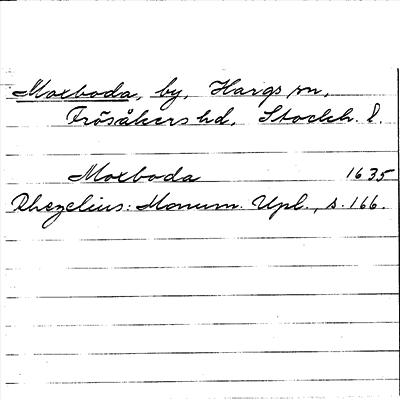 Moxboda, by, Hargs sn,
Frösåkers hd, Stockh. l.
Moxboda 1635
Rhezelius: Monum. Upl., s. 166.